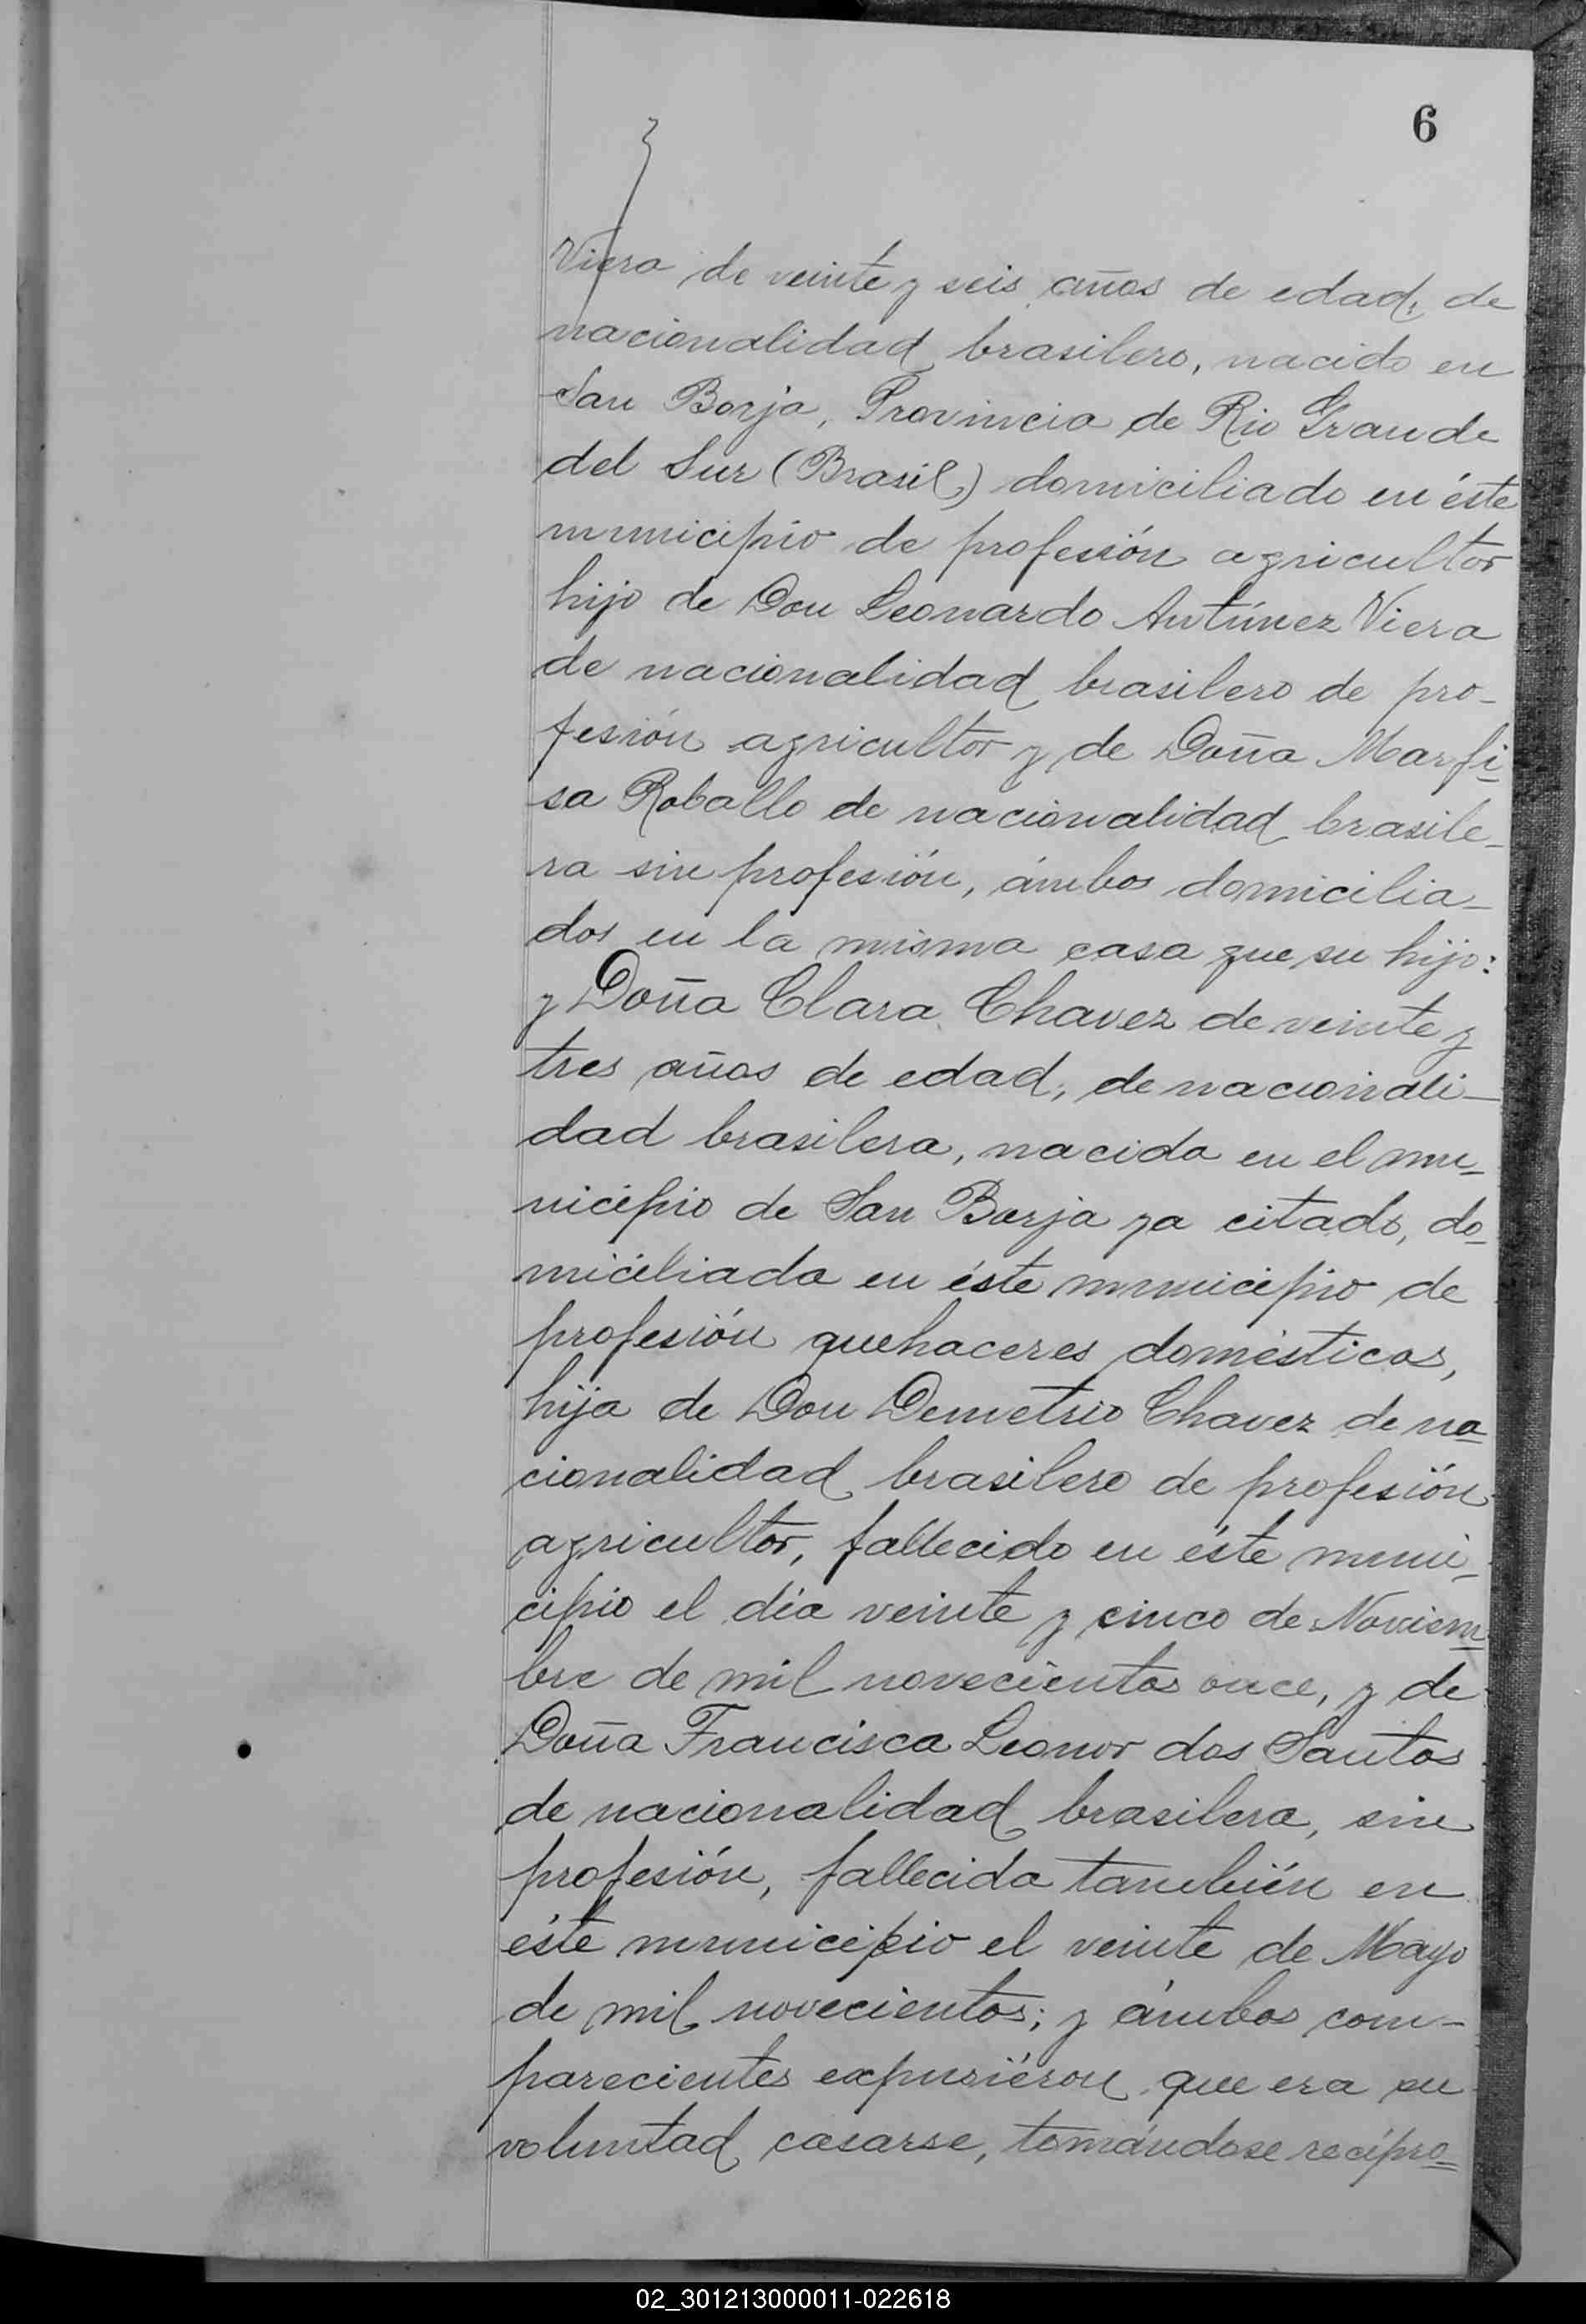 6
Viera de veinte y seis años de edad, de
nacionalidad brasilero, nacido en
San Borja, Provincia de Rio Grande
del Sur (Brasil) domiciliado en éste
municipio de profesión agricultor
hijo de Don Leonardo Antúnez Viera
de nacionalidad brasilero de pro-
fesión agricultor y de Doña Marfi-
sa Roballo de nacionalidad brasile-
ra sin profesión, ámbos domicilia-
dos en la misma casa que su hijo:
y Doña Clara Chavez de veinte y
tres años de edad, de nacionali-
dad brasilera, nacida en el mu-
nicipio de San Borja ya citado, do-
miciliada en éste municipio de
profesión quehaceres domésticos,
hija de Don Demetrio Chavez de na-
cionalidad brasilero de profesión
agricultor, fallecido en éste muni-
cipio el día veinte y cinco de Noviem-
bre de mil novecientos once, y de
Doña Francisca Leonor dos Santos
de nacionalidad brasilera, sin
profesión, fallecida también en
éste municipio el veinte de Mayo
de mil novecientos; y ámbos com-
parecientes expusiéron que era su
voluntad casarse, tomándose recípro=
02_301213000011-022618